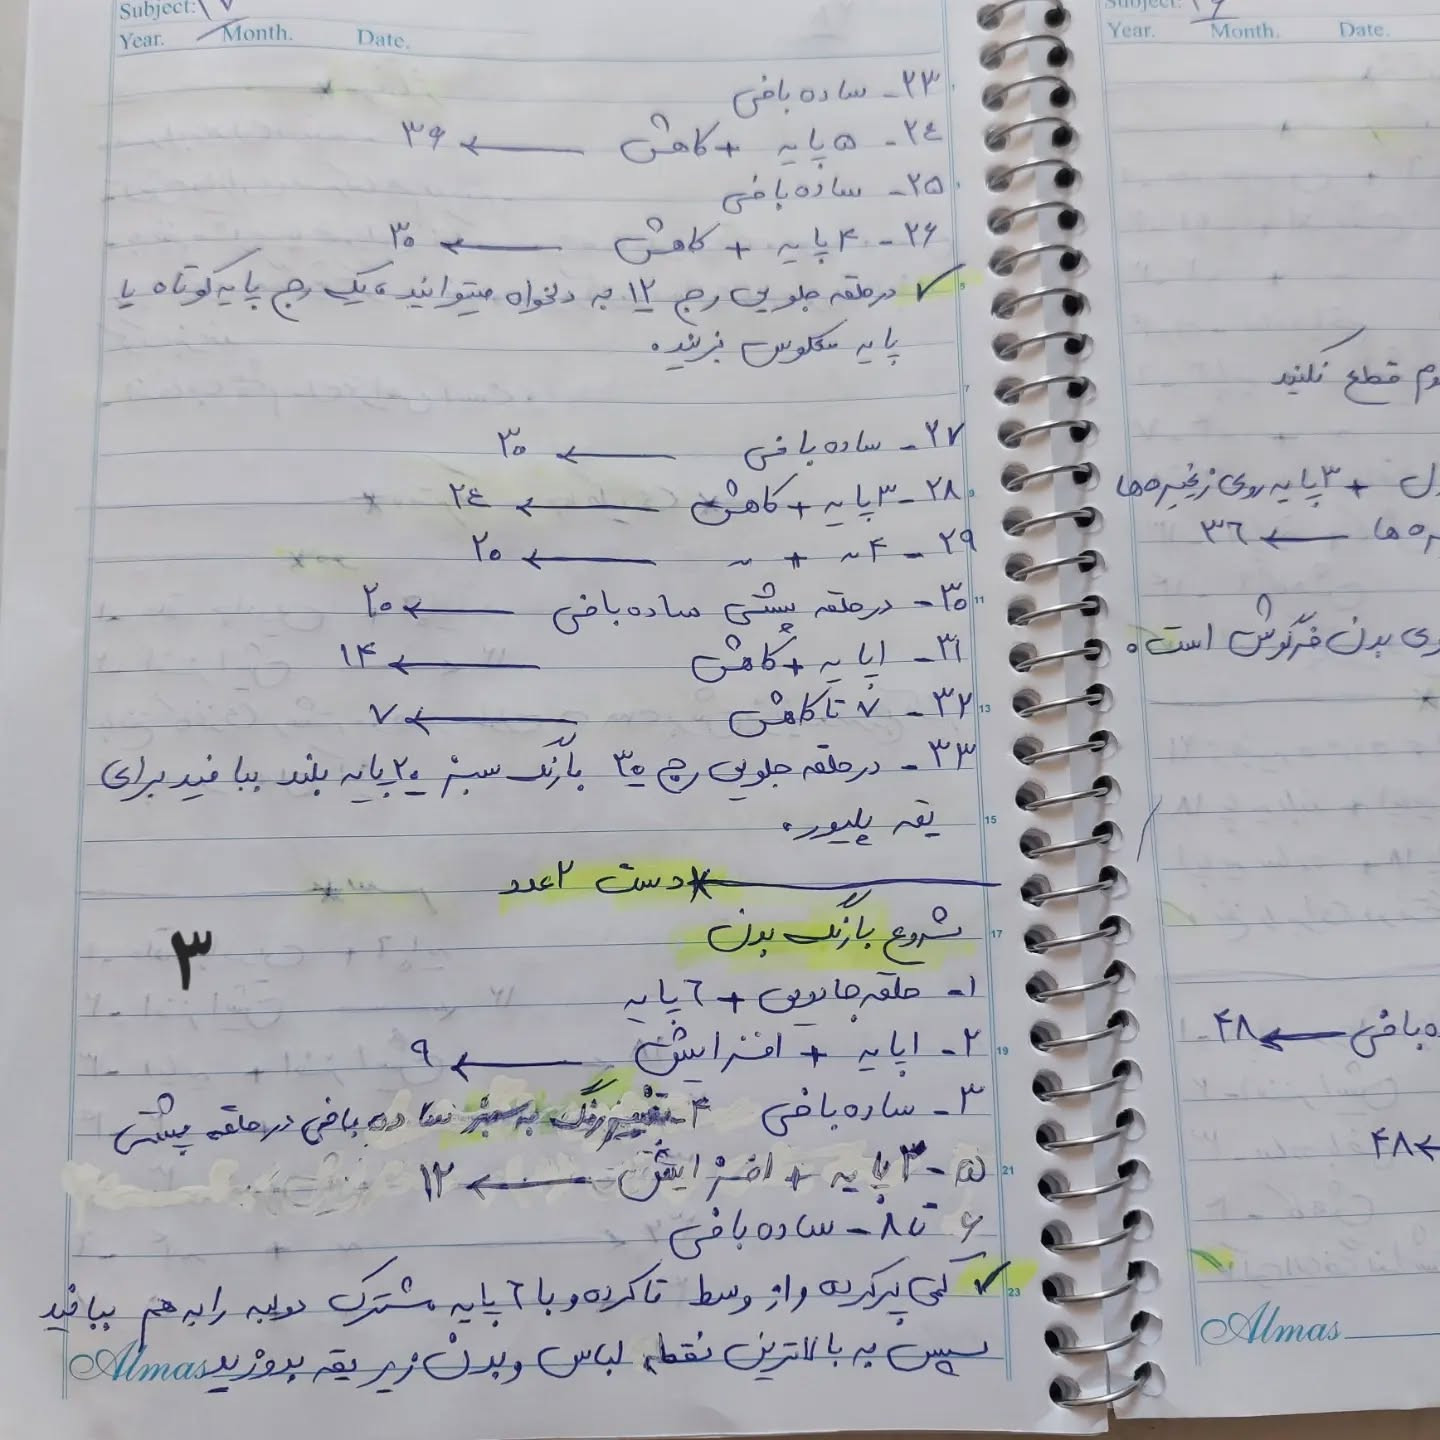 Subject: ۱۷
Year. Month. Date.
۲۳- ساده بافی
۲٤- ۵ پایه + کاهش ← ۳۶
۲۵- ساده بافی
۲۶- ۴ پایه + کاهش ← ۳۰
✓ درحلقه جلویی رج ۱۲ به دلخواه میتوانید، یک رج پایه کوتاه یا
پایه معکوس بزنید.
۲۷- ساده بافی ← ۳۰
۲۸- ۳ پایه + کاهش ← ۲٤
۲۹- ۴ " + " ← ۲۰
۳۰- درحلقه پشتی ساده بافی ← ۲۰
۳۱- ۱ پایه + کاهش ← ۱۴
۳۲- ۷ تا کاهش ← ۷
۳۳- درحلقه جلویی رج ۳۰ با رنگ سبز ۲۰ پایه بلند ببافید برای
یقه پلیور.
*دست ۲ عدد
شروع با رنگ بدن
۳
۱- حلقه جادویی + ٦ پایه
۲- ۱ پایه + افزایش ← ۹
۳- ساده بافی ۴- تغییر رنگ به سبز ساده بافی درحلقه پشتی
۵- ۳ پایه + افزایش ← ۱۲
۶ تا ۸- ساده بافی
✓ کمی پرکرده و از وسط تا کرده و با ٦ پایه مشترک دولبه را به هم ببافید
سپس به بالاترین نقطه لباس و بدن زیر یقه بدوزید
Almas
Subject: ۱۶
Year. Month. Date.
قطع نکنید
+ ۳ پایه روی زنجیره ها
ها ← ۳٦
بدن خرگوش است.
بافی ← ۴۸
← ۴۸
Almas